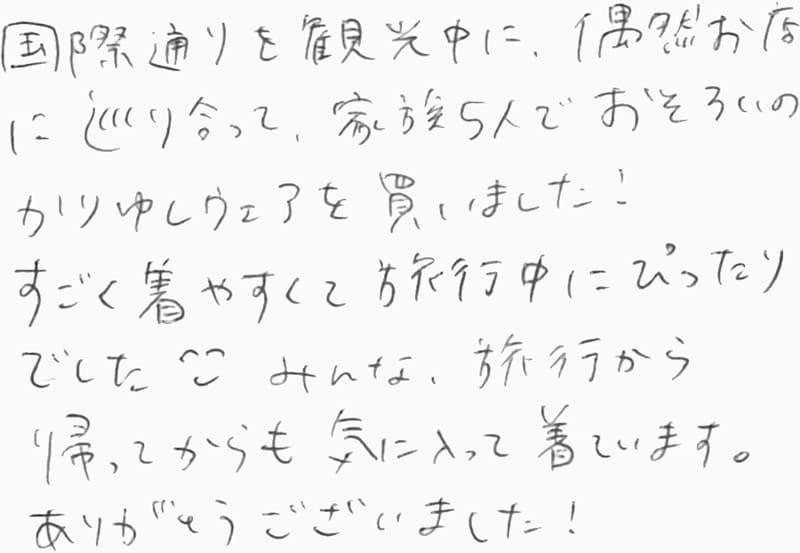 国際通りを観光中に、偶然お店
に巡り合って、家族5人でおそろいの
かりゆしウェアを買いました!
すごく着やすくて旅行中にぴったり
でした みんな、旅行から
帰ってからも気に入って着ています。
ありがとうございました!